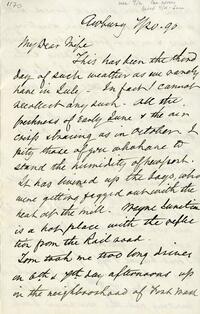 1170
Awbury 7/20.90
My Dear Wife
This has been the third
day of such weather as we rarely
have in July - In fact I cannot
recollect any such. All the
freshness of Early June & the air
crisp & bracing as in October I
pity those of you who have to
stand the humidity of Newport.
It has tuned up the boys, who
were getting fagged out with the
heat at the mill. Wayne Junction
is a hot place with the reflec
tion from the Rail road.
Tom took me two long drives
in 6th & 7th day afternoons up
in the neighbourhood of Fort Wash